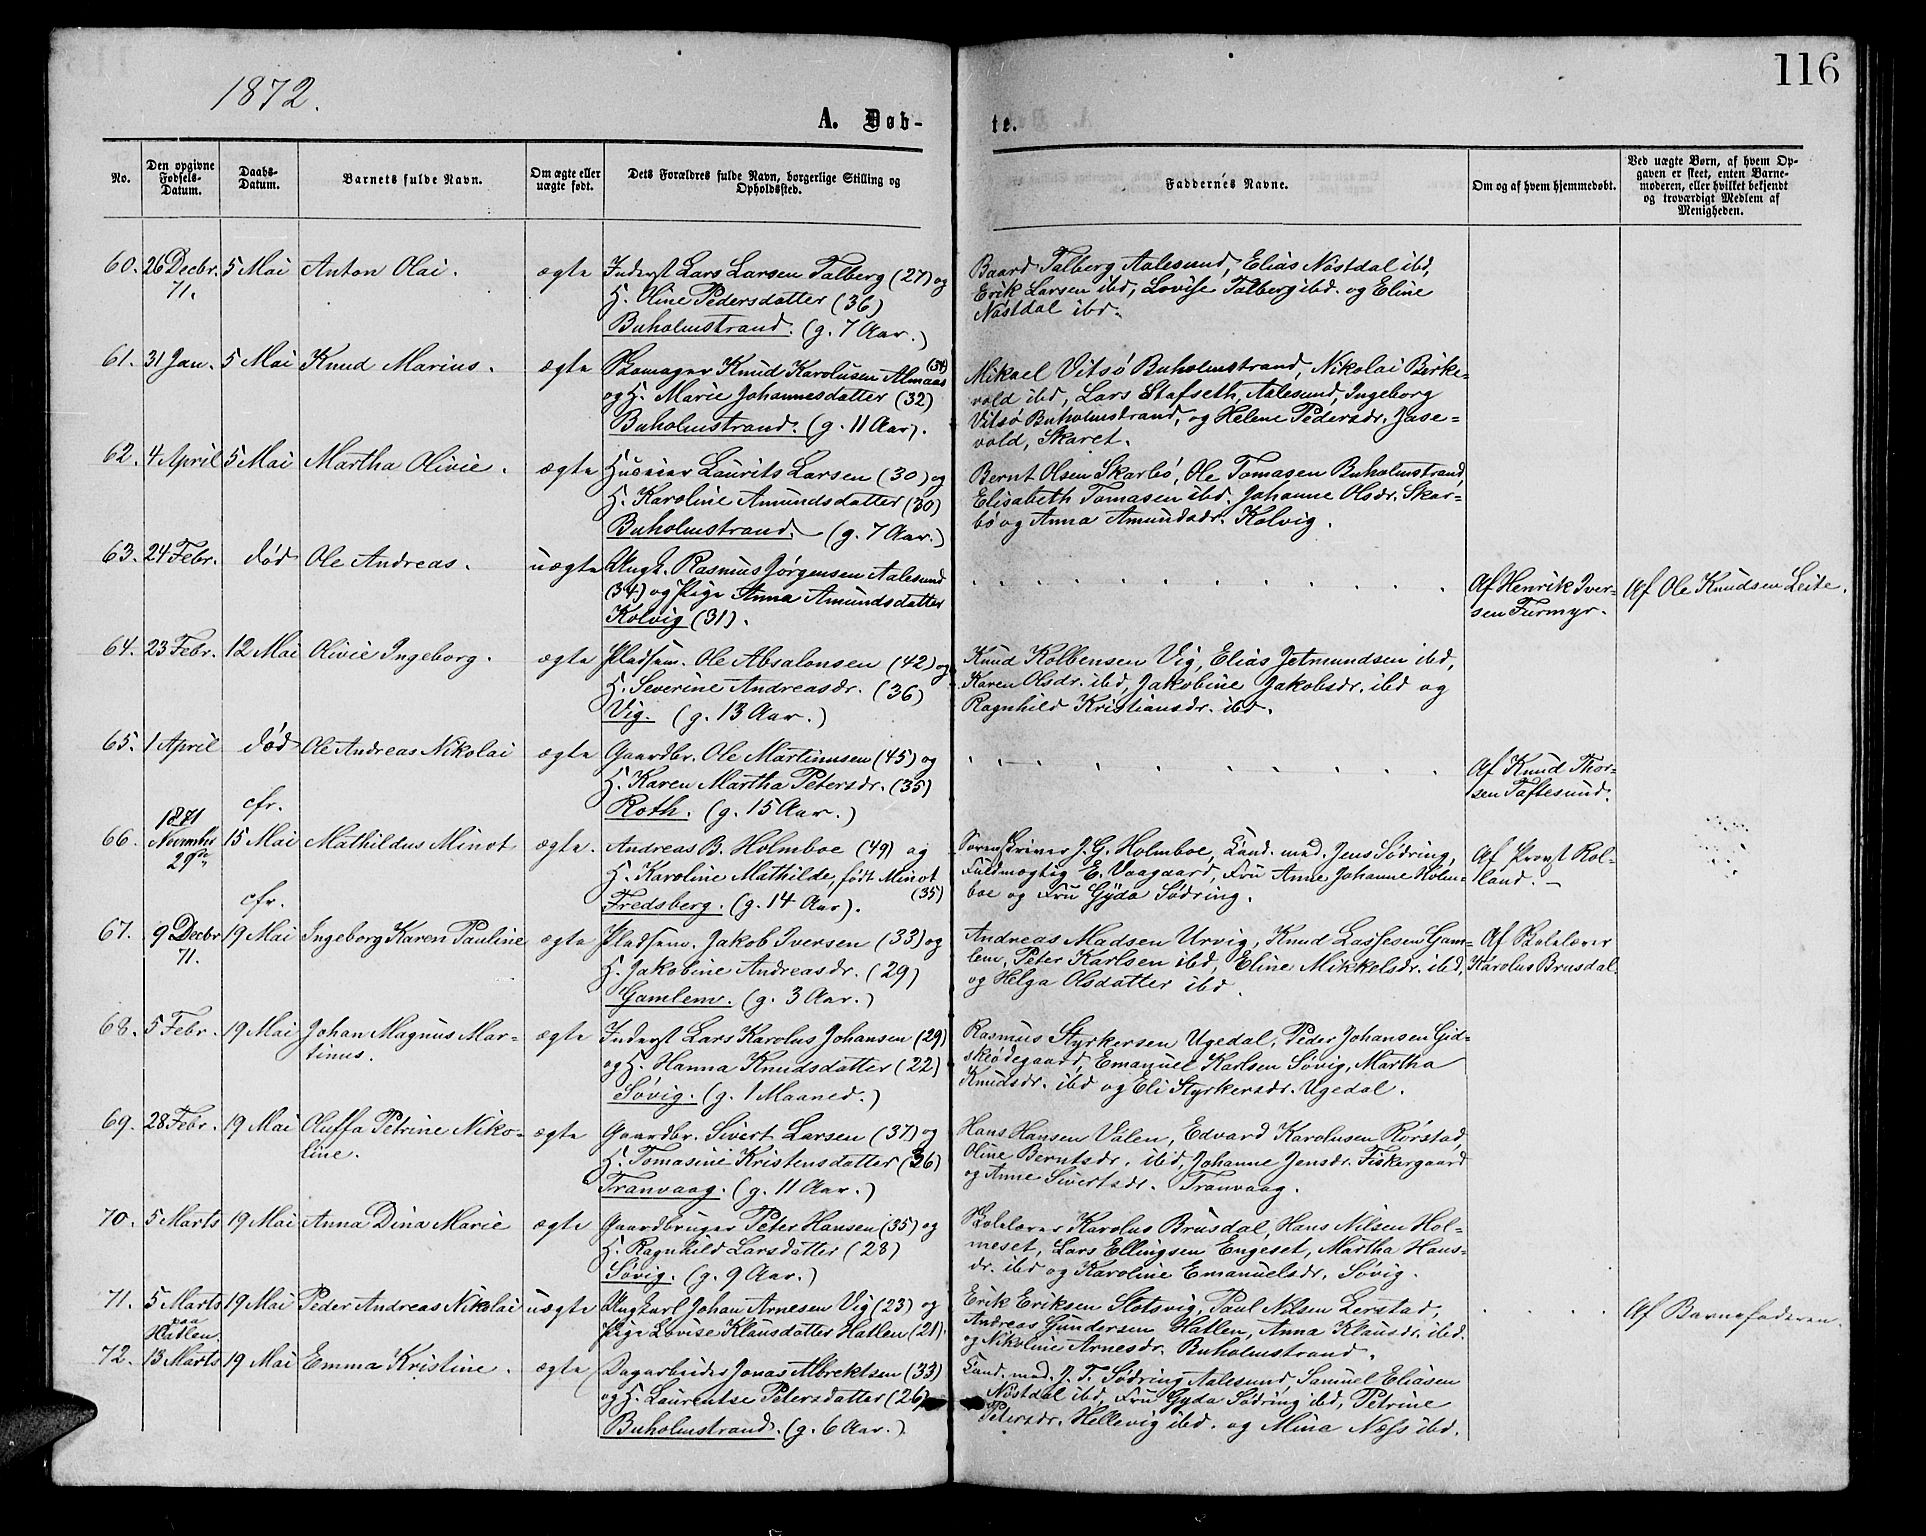 1872.
116
A. Døb-
te.
No.
Den opgivne
Fødsels-
Datum.
Daabs-
Datum.
Barnets fulde Navn.
Om ægte eller
uægte født.
Dets Forældres fulde Navn, borgerlige Stilling og
Opholdssted.
Faddernes Navne.
Om og af hvem hjemmedøbt.
Ved uægte Børn, af hvem Op-
gaven er skeet, enten Barne-
moderen, eller hvilket bekjendt
og troværdigt Medlem af
Menigheden.
60. 26 Decbr. 5 Mai Anton Olai. ægte Inderst Lars Larsen Talberg (27) og
71.
H. Oline Pedersdatter (36)
Buholmstrand. (g. 7 Aar.)
Baard Talberg Aalesund, Elias Nøstdal ibd,
Erik Larsen ibd, Lovise Talberg ibd. og Eline
Nøstdal ibd.
61. 31 Jan. 5 Mai Knud Marius. ægte Skomager Knud Karolusen Almaas (34)
og H. Marie Johannesdatter (32)
Buholmstrand. (g. 11 Aar).
Mikael Vitsø Buholmstrand, Nikolai Birke-
vold ibd, Lars Stafseth, Aalesund, Ingeborg
Vitsø Buholmstrand, og Helene Pedersdr. Jase-
vold, Skaret.
62. 4 April 5 Mai Martha Olivie. ægte Huseier Laurits Larsen (30) og
H. Karoline Amundsdatter (30)
Buholmstrand. (g. 7 Aar.)
Bernt Olsen Skarbø, Ole Tomasen Buholmstrand
Elisabeth Tomasen ibd, Johanne Olsdr. Skar-
bø og Anna Amundsdr. Kolvig.
63. 24 Febr. død Ole Andreas. uægte Ungk. Rasmus Jørgensen Aalesund
(34) og Pige Anna Amundsdatter
Kolvig (31).
Af Henrik Iver-
sen Furmyr.
Af Ole Knudsen Leite.
64. 23 Febr. 12 Mai Olivie Ingeborg. ægte Pladsem. Ole Absalonsen (42) og
H. Severine Andreasdr. (36)
Vig. (g. 13 Aar.)
Knud Kolbensen Vig, Elias Jetmundsen ibd,
Karen Olsdr. ibd, Jakobine Jakobsdr. ibd og
Ragnhild Kristiansdr. ibd.
65. 1 April død Ole Andreas Nikolai ægte Gaardbr. Ole Martinusen (45) og
H. Karen Martha Petersdr. (35)
Roth. (g. 15 Aar.)
Af Knud Thor-
sen Taftesund.
cfr.
1871
66. November 15 Mai Mathildus Minot ægte. Andreas B. Holmboe (49) og
29de
H. Karoline Mathilde, født Minot
(35)
Fredsberg. (g. 14 Aar).
Sorenskriver J. G. Holmboe, Cand. med. Jens Sødring,
Fuldmægtig E. Vaagaard, Fru Anne Johanne Holm-
boe og Fru Gyda Sødring.
Af Provst Kol-
land. —
cfr.
67. 9 Decbr 19 Mai Ingeborg Karen Pauline ægte Pladsem. Jakob Iversen (33) og
71.
H. Jakobine Andreasdr. (29)
Gamlem. (g. 3 Aar.)
Andreas Madsen Urvig, Knud Lassesen Gam-
lem, Peter Karlsen ibd, Eline Mikkelsdr. ibd,
og Helga Olsdatter ibd.
Af Skolelærer
Karolus Brusdal
68. 5 Febr. 19 Mai Johan Magnus Mar-
tinus.
ægte Inderst Lars Karolus Johansen (29)
og H. Hanna Knudsdatter (22)
Søvig. (g. 1 Maaned.)
Rasmus Styrkersen Ugedal, Peder Johansen Gid-
skødegaard, Emanuel Karlsen Søvig, Martha
Knudsdr. ibd og Eli Styrkersdr. Ugedal.
69. 28 Febr. 19 Mai Oluffa Petrine Niko-
line.
ægte Gaardbr. Sivert Larsen (37) og
H. Tomasine Kristensdatter (36)
Tranvaag. (g. 11 Aar.)
Hans Hansen Valen, Edvard Karolusen Rørstad,
Oline Berntsdr. ibd, Johanne Jensdr. Fiskergaard
og Anne Sivertsdr. Tranvaag.
70. 5 Marts 19 Mai Anna Dina Marie ægte Gaardbruger Peter Hansen (35) og
H. Ragnhild Larsdatter (28)
Søvig. (g. 9 Aar.)
Skolelærer Karolus Brusdal, Hans Nilsen Hol-
meset, Lars Ellingsen Engeset, Martha Hans-
dr. ibd og Karoline Emanuelsdr. Søvig.
71. 5 Marts 19 Mai Peder Andreas Nikolai uægte Ungkarl Johan Arnesen Vig (23) og
paa
Hatlen.
Pige Lovise Klausdatter Hatlen (21).
Erik Eriksen Slotsvig, Paul Nilsen Lerstad,
Andreas Gundersen Hatlen, Anna Klausdr. ibd.
og Nikoline Arnesdr. Buholmstrand.
Af Barnefaderen.
72. 13 Marts 19 Mai Emma Kristine. ægte Dagarbeider Jonas Albrektsen (33)
og H. Laurentse Petersdatter (26)
Buholmstrand. (g. 6 Aar.)
Cand. med. J. T. Sødring Aalesund, Samuel Eliasen
Nøstdal ibd, Fru Gyda Sødring ibd, Petrine
Petersdr. Hellevig ibd. og Mina Næss ibd.